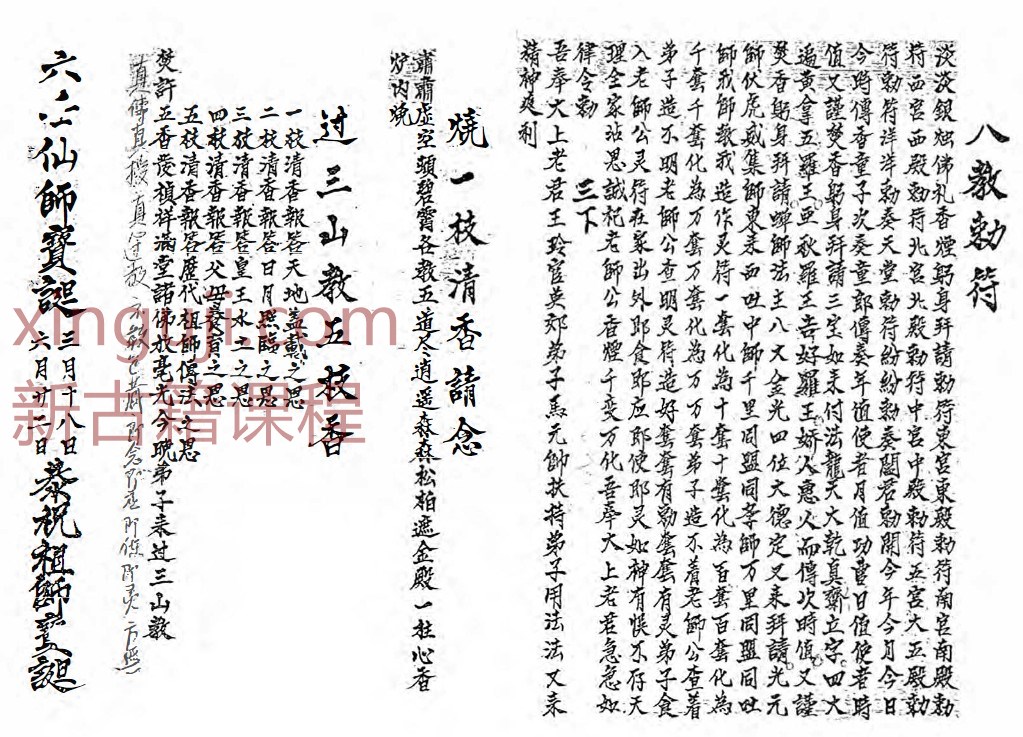 八教勅符
淡淡銀燭佛礼香煙躬身拜請勅符東宮東殿勅符南宮南殿勅
符西宮西殿勅符北宮北殿勅符中宮中殿勅符五宮大五殿勅
符勅符洋洋勅奏天堂勅符紛紛勅奏閻君勅開今年今月今日
今時傳香童子次奏童郎傳奏年值使者月值功曹日值使者時
值又謹焚香躬身拜請三宝如来付法龍天大乾真齋立字四大
遍黄拿五羅王亜秋羅王吉好羅王娇人惠人而傳次時值又謹
焚香躬身拜請蝉師法主八丈金光四位大德定又来拜請光元
師伏虎威集師東来西吐中師千里同盟同孝師万里同盟同吐
師我師教我造作灵符一套化為十套十套化為百套百套化為
千套千套化為万套万套化為万万套弟子造不着老師公查着
弟子造不明老師公查明灵符造好套套有勅套套有灵弟子食
入老師公灵符在家出外即食即应即使即灵如神有悵不存天
理全家沾恩誠祀老師公香煙千变万化吾奉大上老君急急如
律令勅
三下
吾奉大上老君王玲官英郊弟子馬元帥扶持弟子用法法又来
精神爽利
燒一枝清香請念
肅肅虚空頭碧霄各教五道尽逍遥森森松柏遮金殿一柱心香
炉内燒
过三山教五枝香
一枝清香報答天地盖載之恩
二枝清香報答日月照臨之恩
三枝清香報答皇王水土之恩
四枝清香報答父母養育之恩
五枝清香報答歷代祖師傳法之恩
五香愛禎祥满堂諸佛放毫光今晚弟子来过三山教
焚許
真傳真授真
六仙師寶誕
三月十八日
六月廿二日
恭祝祖師寶誕
xingujicom
新古籍课程